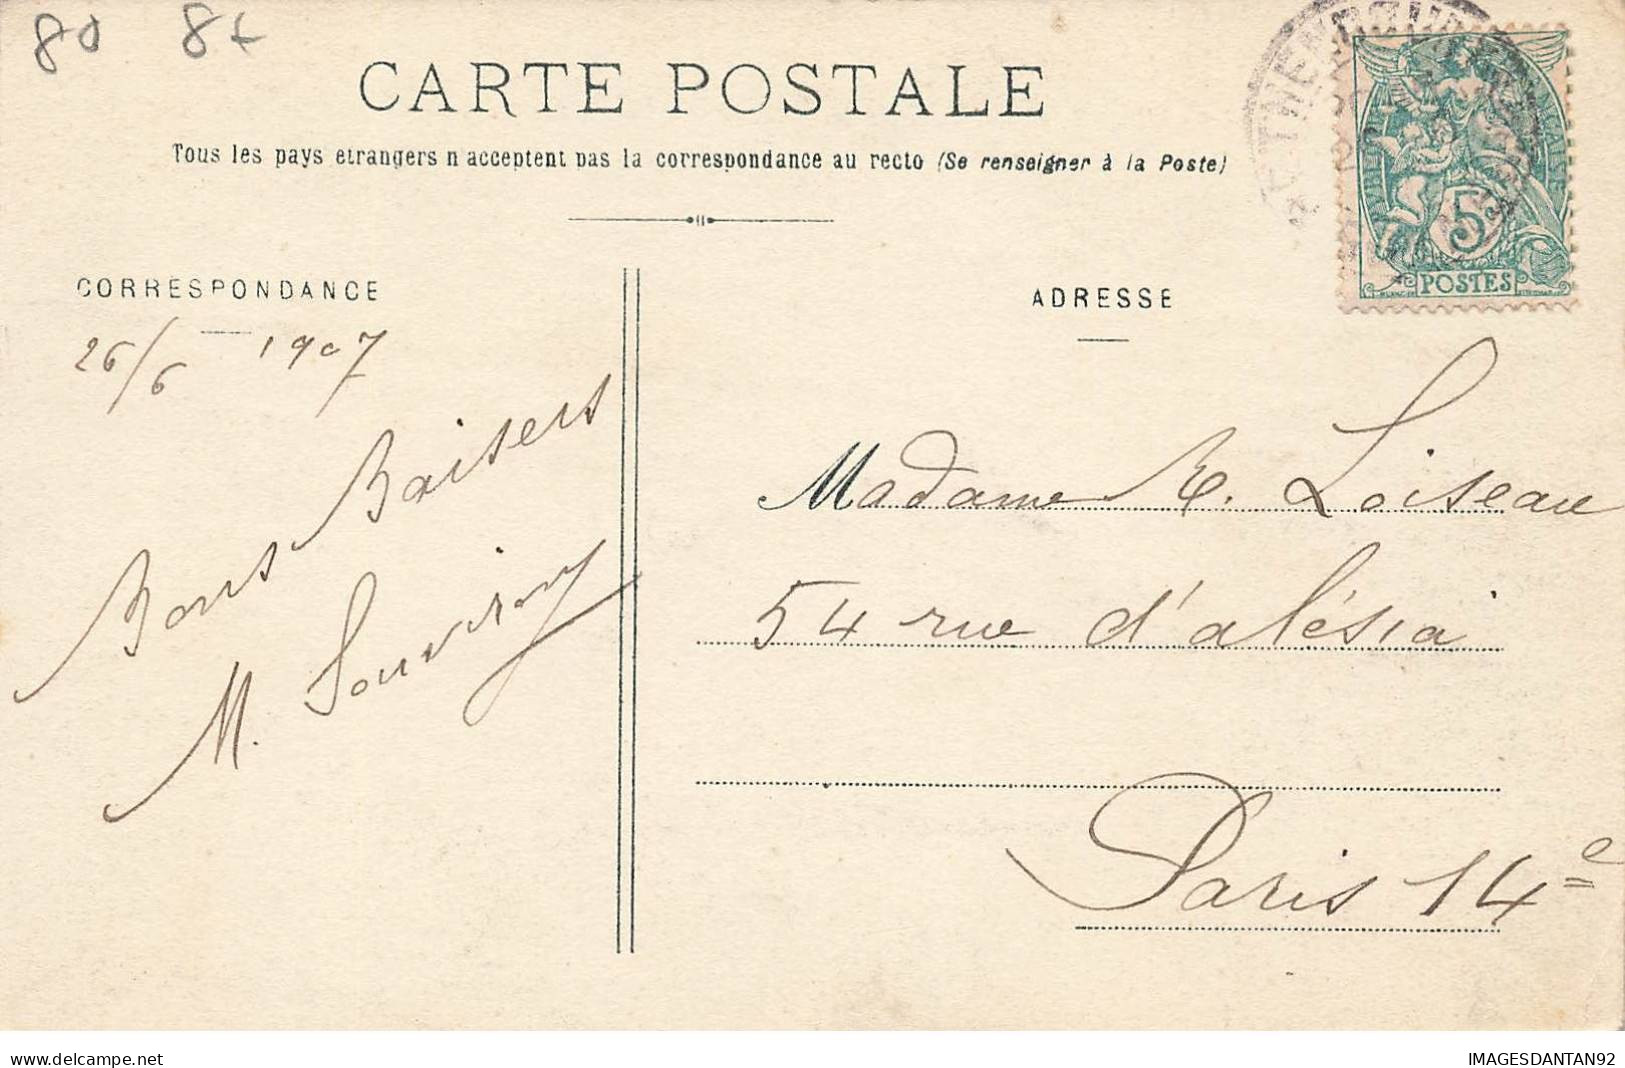 80 8t
CARTE POSTALE
Tous les pays etrangers n acceptent pas la correspondance au recto (Se renseigner à la Poste)
CORRESPONDANCE
26/6 1907
Bons Baisers
M. Souviron
ADRESSE
5c
POSTES
Madame R. Loiseau
54 rue d'alésia
Paris 14e
delcampe.net
IMAGESDANTAN92